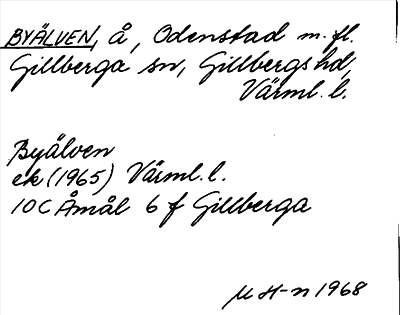 BYÄLVEN, å, Odenstad m.fl.
Gillberga sn, Gillbergs hd,
Värml. l.
Byälven
ek (1965) Värml. l.
10 C Åmål 6 f Gillberga
M H-n 1968